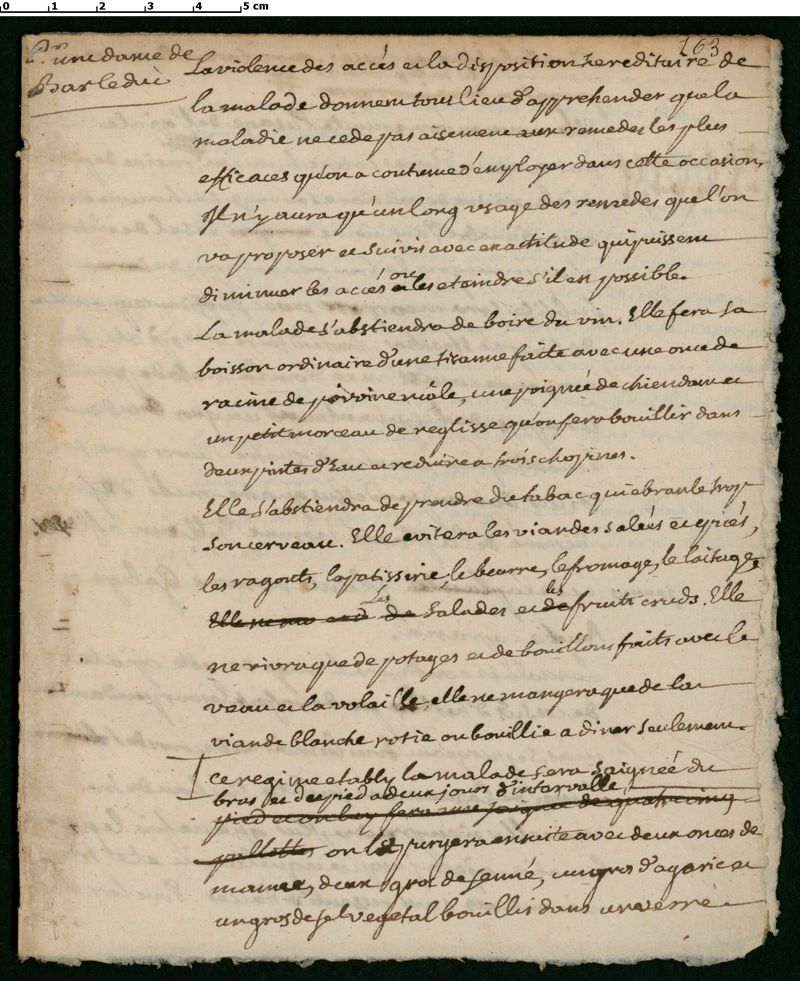 0 1 2 3 4 5 cm
163
P. une dame de
Barleduc
La violence des accés et la disposition hereditaire de
la malade donnent tous lieu d'apprehender que la
maladie ne cede pas aisement aux remedes les plus
efficaces qu'on a coutume d'employer dans cette occasion,
Il n'y aura qu'un long usage des remedes que l'on
va proposer et suivis avec exactitude qui puissent
diminuer les accés ou les etoindre s'il est possible.
La malade s'abstiendra de boire du vin. Elle fera sa
boisson ordinaire d'une tisanne faite avec une once de
racine de pivoine mâle, une poignée de chiendant et
un petit morceau de reglisse qu'on fera bouillir dans
deux pintes d'Eau et reduire a trois chopines.
Elle s'abstiendra de prendre du tabac qui ebranle trop
son cerveau. Elle evitera les viandes salées et epicés,
les ragouts, la patisserie, le beurre, le fromage, le laitage,
Les salades et les fruits cruds. Elle
ne vivra que de potages et de bouillons faits avec le
veau et la volaille, elle ne mangera que de la
viande blanche rotie ou bouillie a diner seulement.
ce regime etably la malade sera saignée du
bras et du pied a deux jours d'intervalle
pied et on luy fera une saignée de quatre cinq
pallettes on la purgera ensuite avec deux onces de
manne, deux gros de senné, un gros d'agaric et
un gros de sel vegetal bouillis dans un verre